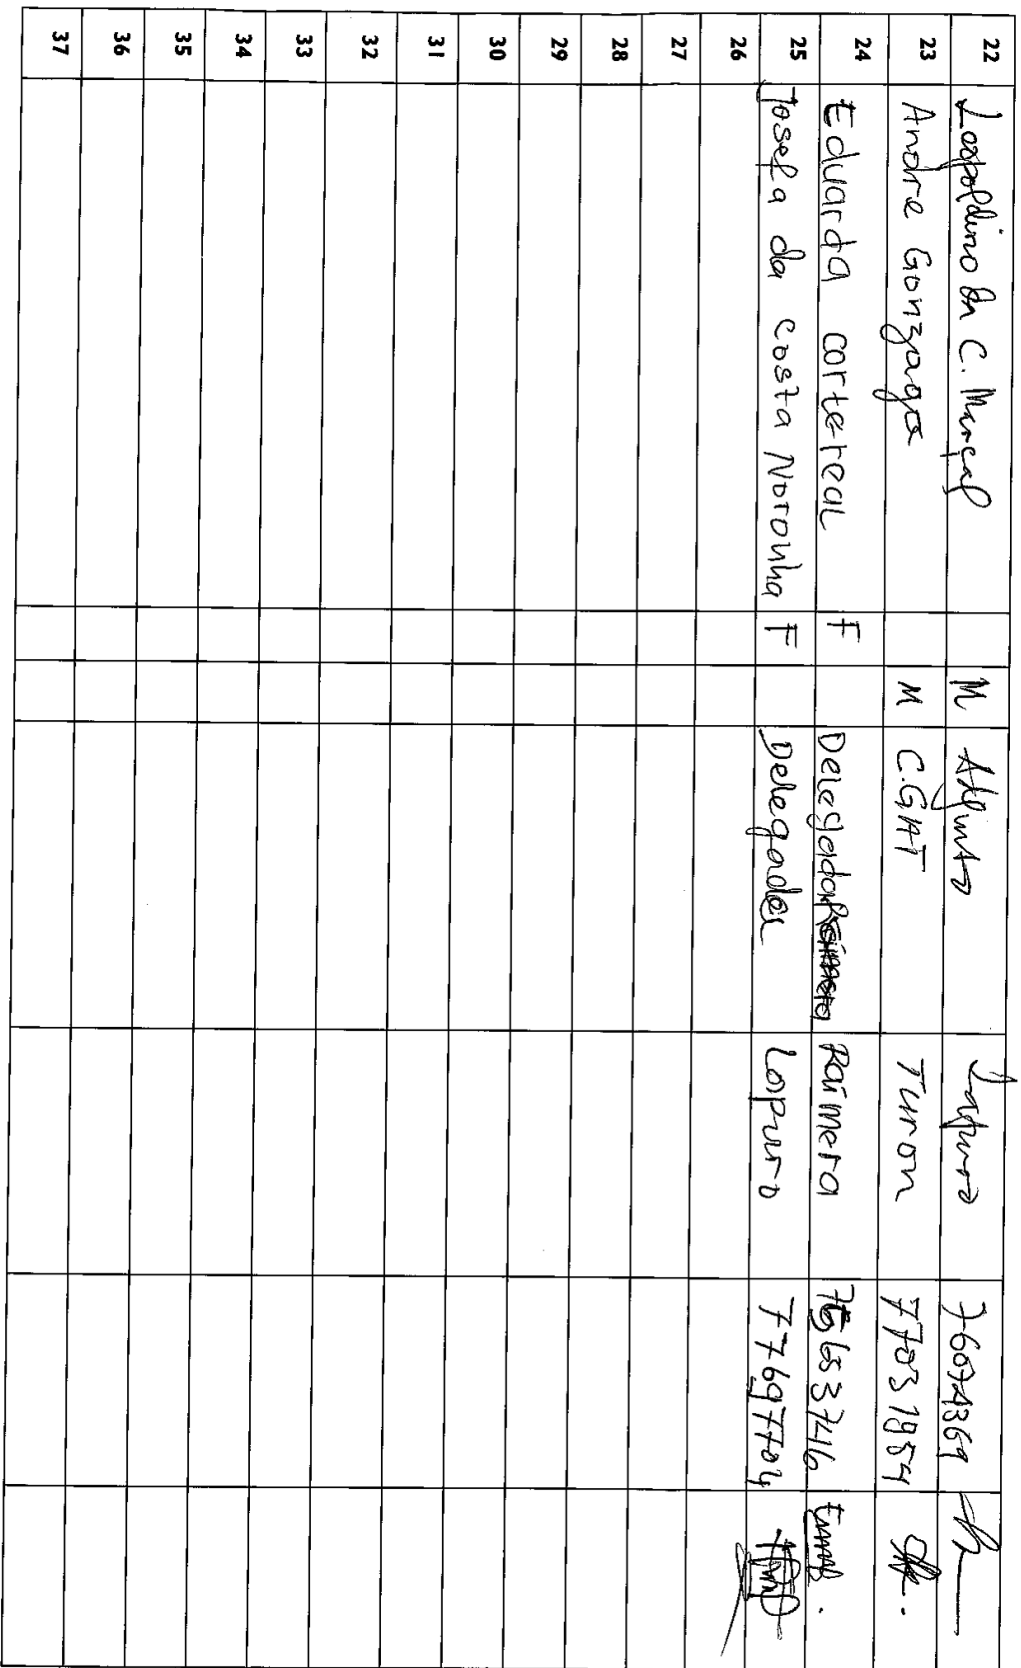 22 Leopoldino da C. Marçal M Adjunto 76074369
23 Andre Gonzaga M C.GAT Turon 77031954
24 Eduarda cortereal F Delegada Raimera
25 Josefa da costa Noronha F Delegada Lapuro 77697704
26
27
28
29
30
31
32
33
34
35
36
37